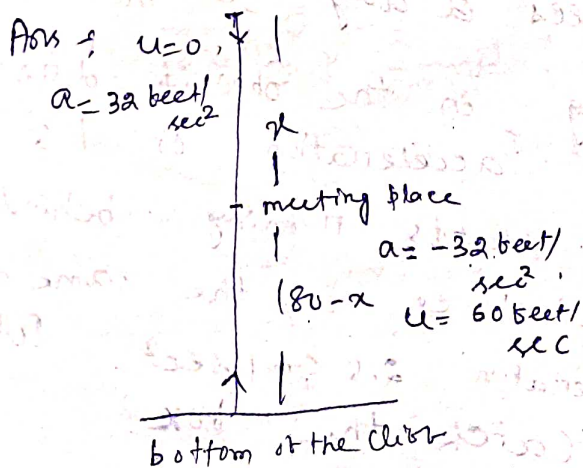 Ans : u=0,
a= 32 feet/
sec²
x
meeting place
a= -32 feet/
sec²
180-x
u= 60 feet/
sec
bottom of the cliff